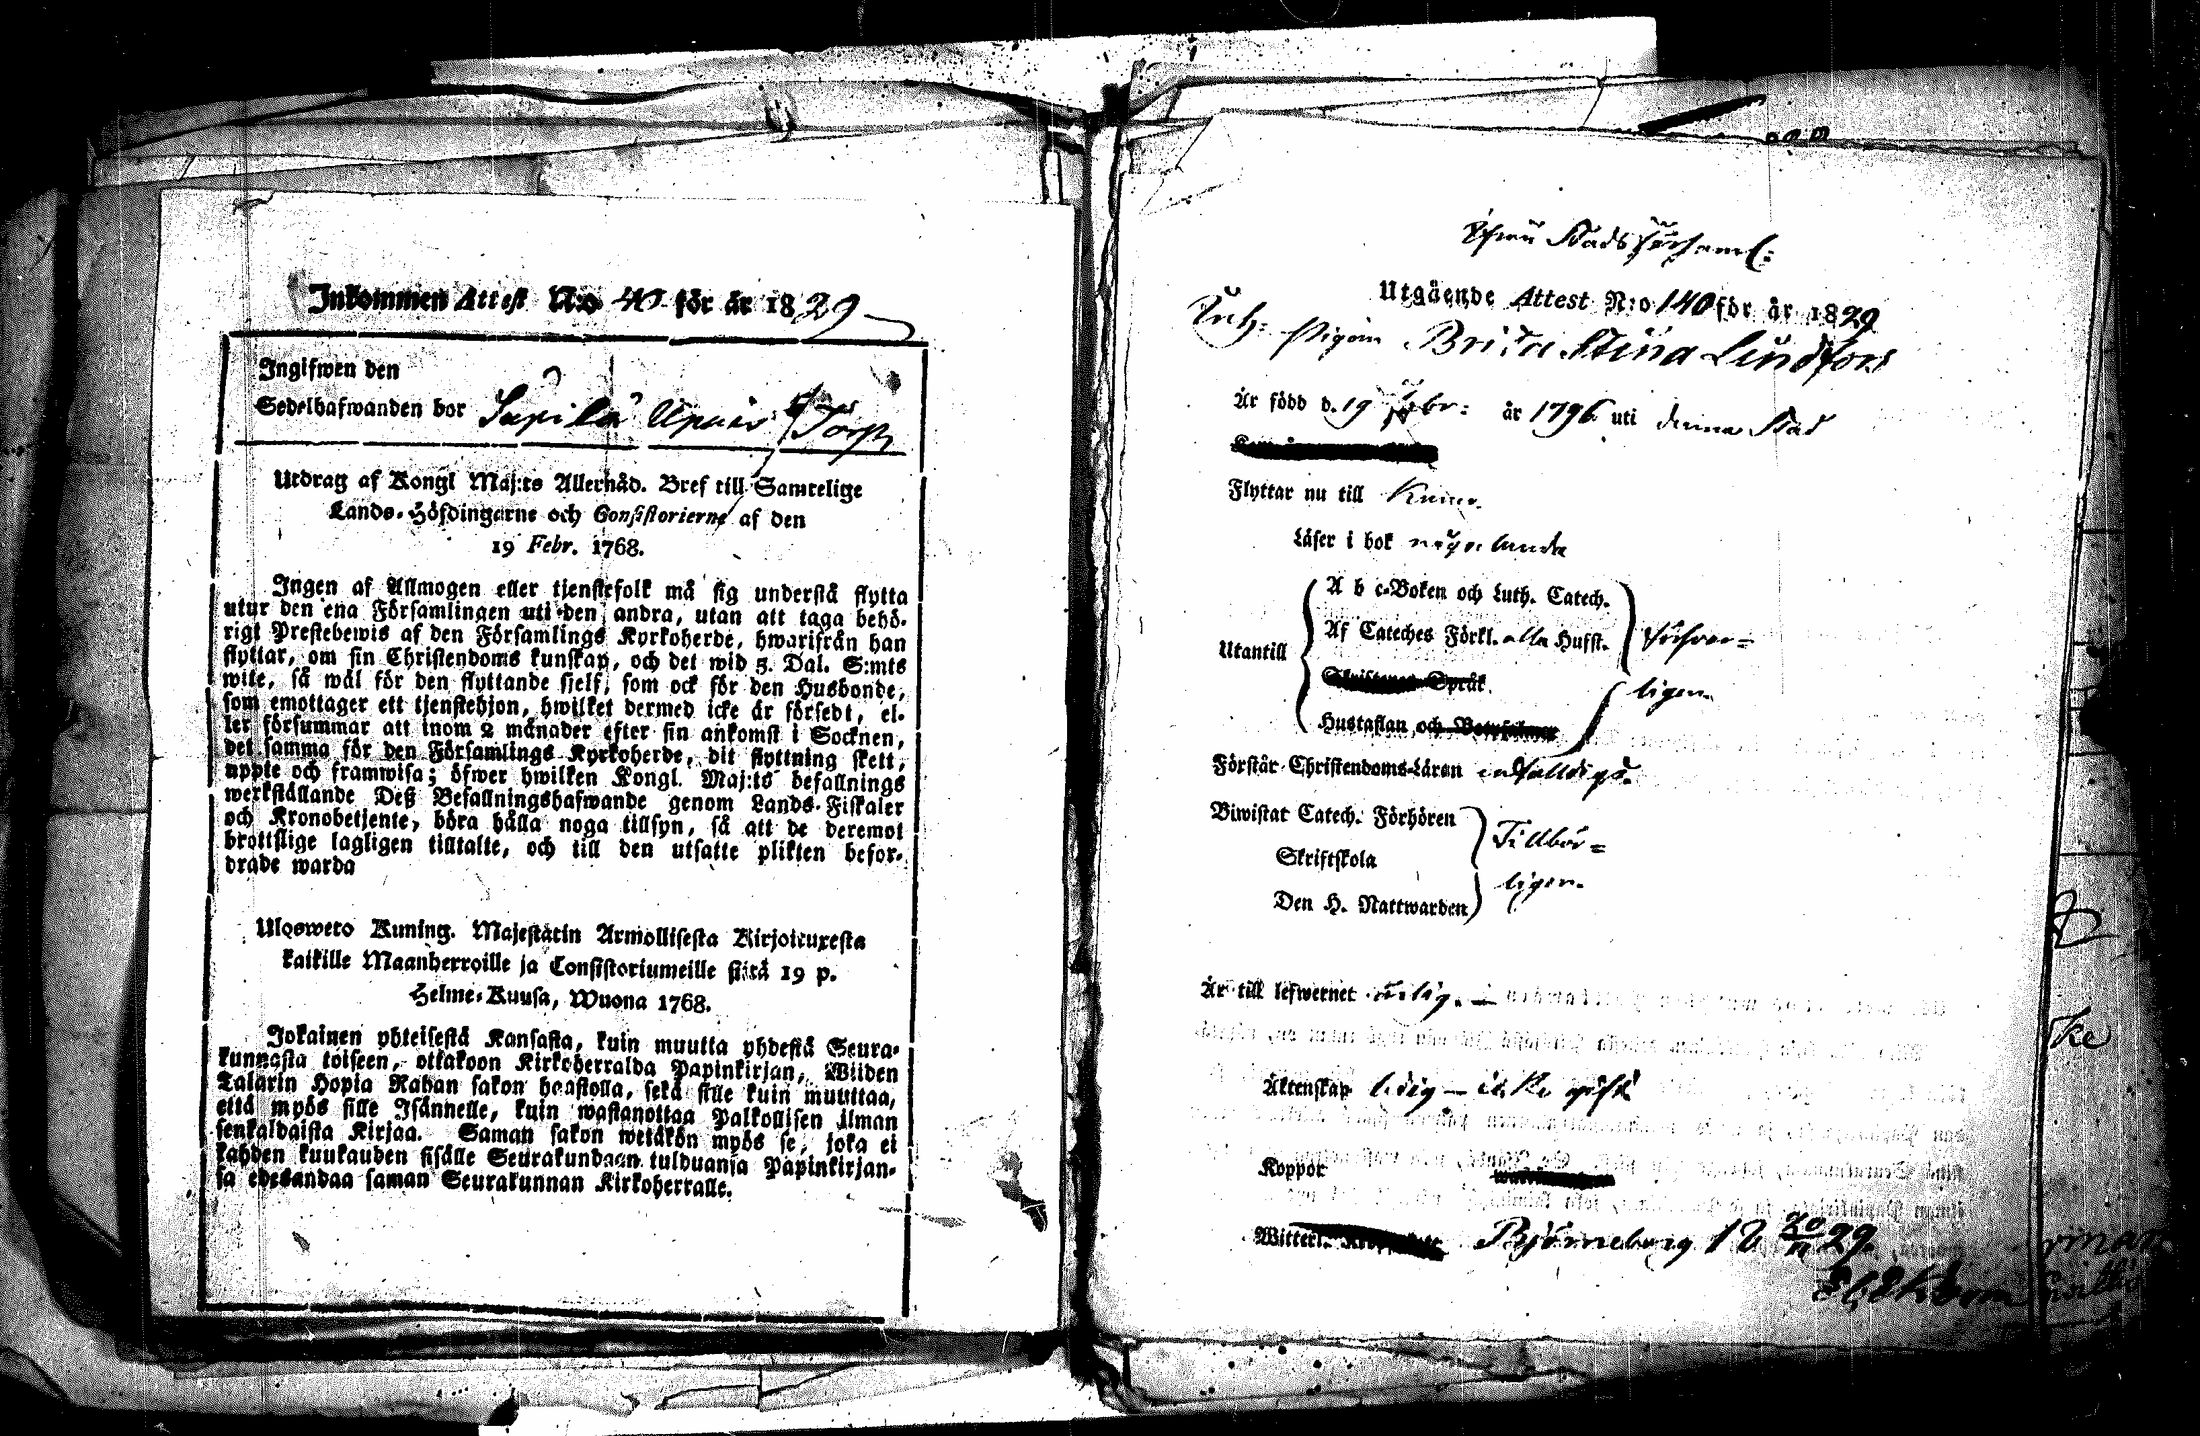 Inkommen Attest N:o 40 för år 1829
Ingifwen den
Sedelhafwanden bor
Utdrag af Kongl Maj:ts Allernåd. Bref till Samtelige
Lands-Höfdingarne och Consistorierne af den
19 Febr. 1768.
Ingen af Allmogen eller tjenstefolk må sig understå flytta
utur den ena Församlingen uti den andra, utan att taga behö-
rigt Prestebewis af den Församlings Kyrkoherde, hwarifrån han
flyttar, om sin Christendoms kunskap, och det wid 5. Dal. S:mts
wite, så wäl för den flyttande sjelf, som ock för den Husbonde,
som emottager ett tjenstehjon, hwilket dermed icke är försedt, el-
ler försummar att inom 2 månader efter sin ankomst i Socknen,
det samma för den Församlings Kyrkoherde, dit flyttning skett,
uppte och framwisa; öfwer hwilken Kongl. Maj:ts befallnings
werkställande Deß Befallningshafwande genom Lands-Fiskaler
och Kronobetjente, böra hålla noga tillsyn, så att de deremot
brottslige lagligen tilltalte, och till den utsatte plikten befor-
drade warda
Ulosweto Kuning. Majestätin Armollisesta Kirjoituxesta
kaikille Maanherroille ja Consistoriumeille siitä 19 p.
Helme-Kuusa, Wuona 1768.
Jokainen yhteisestä Kansasta, kuin muutta yhdestä Seura-
kunnasta toiseen, ottakoon Kirkoherralda Papinkirjan, Wiiden
Talarin Hopia Rahan sakon haastolla, sekä sille kuin muuttaa,
että myös sille Isännelle, kuin wastanottaa Palkollisen ilman
senkaldaista Kirjaa. Saman sakon wetäkön myös se, joka ei
kahden kuukauden sisälle Seurakundaan tulduansa Papinkirjan-
sa edesandaa saman Seurakunnan Kirkoherralle.
Stads församl:
Utgående Attest N:o 140 för år 1829
Pigan Brita Stina Lindfors
Är född d. 19 år 1796 uti denna Stad
Flyttar nu till Kumo.
Läser i bok någorlunda
Utantill
A b c-Boken och Luth. Catech.
Af Cateches Förkl. alla Hufst.
Förswar=
Skriftenes Språk
ligen.
Hustaflan och Botpsalmer
Förstår Christendoms-Läran enfaldigt.
Biwistat Catech. Förhören
Tillbör=
Skriftskola
ligen.
Den H. Nattwarden
Är till lefwernet
Äktenskap ledig – icke gift
Koppor
Witterl.
Björneborg 18 20/11 29.